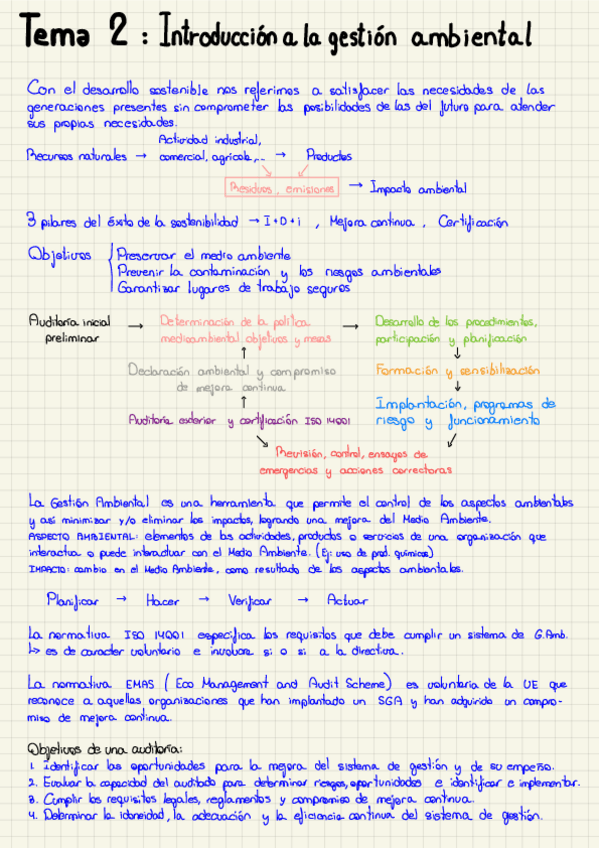 Tema 2 : Introducción a la gestión ambiental
Con el desarrollo sostenible nos referimos a satisfacer las necesidades de las
generaciones presentes sin comprometer las posibilidades de las del futuro para atender
sus propias necesidades.
Recursos naturales → Actividad industrial, comercial, agrícola,... → Productos
Residuos, emisiones → Impacto ambiental
3 pilares del éxito de la sostenibilidad → I+D+i , Mejora continua , Certificación
Objetivos
Preservar el medio ambiente
Prevenir la contaminación y los riesgos ambientales
Garantizar lugares de trabajo seguros
Auditoría inicial → Determinación de la política → Desarrollo de los procedimientos,
preliminar medioambiental objetivos y metas participación y planificación
Declaración ambiental y compromiso Formación y sensibilización
de mejora continua
Implantación, programas de
Auditoría exterior y certificación ISO 14001 riesgo y funcionamiento
Revisión, control, ensayos de
emergencias y acciones correctoras
La Gestión Ambiental es una herramienta que permite el control de los aspectos ambientales
y así minimizar y/o eliminar los impactos, logrando una mejora del Medio Ambiente.
ASPECTO AMBIENTAL: elementos de las actividades, productos o servicios de una organización que
interactua o puede interactuar con el Medio Ambiente. (Ej: uso de prod. químicos)
IMPACTO: cambio en el Medio Ambiente, como resultado de los aspectos ambientales.
Planificar → Hacer → Verificar → Actuar
La normativa ISO 14001 especifica los requisitos que debe cumplir un sistema de G.Amb.
↳ es de caracter voluntario e involucra si o si a la directiva.
La normativa EMAS ( Eco Management and Audit Scheme) es voluntaria de la UE que
reconoce a aquellas organizaciones que han implantado un SGA y han adquirido un compro-
miso de mejora continua.
Objetivos de una auditoría:
1. Identificar las oportunidades para la mejora del sistema de gestión y de su
2. Evaluar la capacidad del auditado para determinar riesgos, oportunidades e identificar e implementar.
3. Cumplir los requisitos legales, reglamentos y compromiso de mejora continua.
4. Determinar la idoneidad, la adecuación y la eficiencia continua del sistema de gestión.